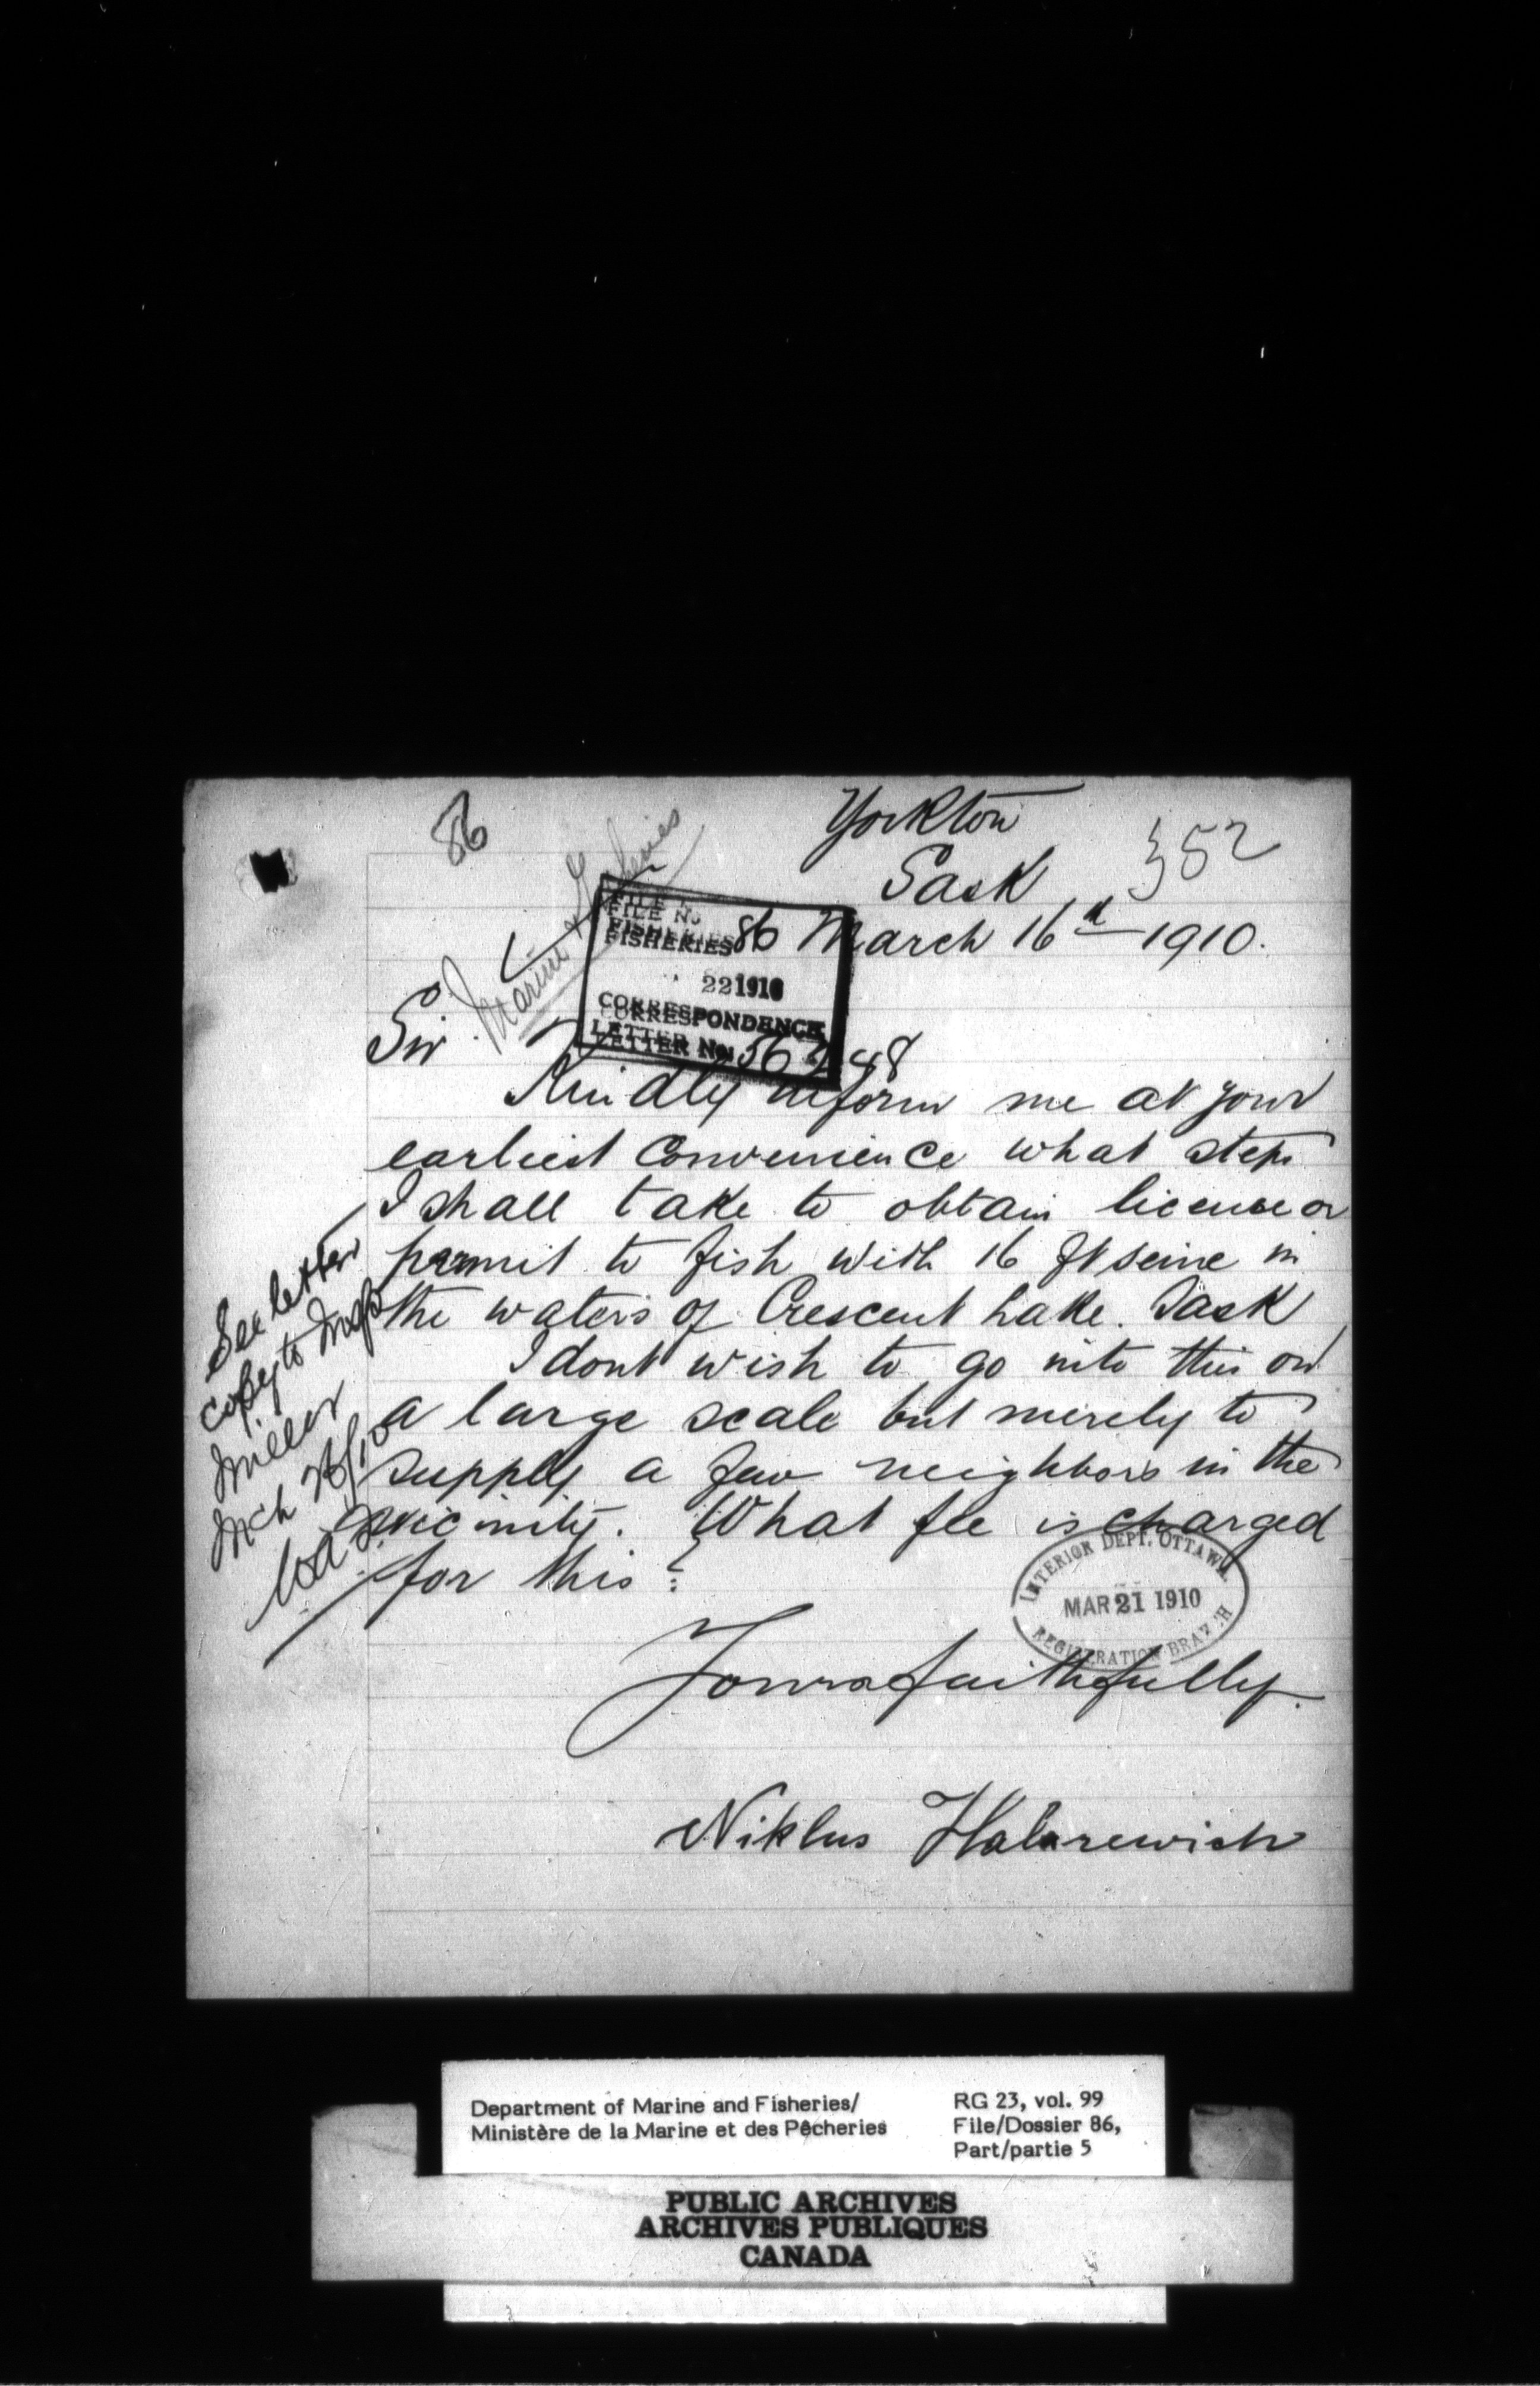 86
Yorkton
Sask
352
March 16th 1910.
Marine & Fisheries
FILE No
FISHERIES 86
22 1910
CORRESPONDENCE
LETTER No.
Sir
Kindly inform me at your
earliest convenience what steps
I shall take to obtain license or
permit to fish with 16 ft seine in
the waters of Crescent Lake. Sask
I dont wish to go into this on
a large scale but merely to
supply a few neighbors in the
vicinity. What fee is charged
for this?
See letter
copy to
Miller
Mch 26/10
INTERIOR DEPT. OTTAWA
MAR 21 1910
REGISTRATION BRANCH
Yours faithfully
Niklus
Department of Marine and Fisheries/
Ministère de la Marine et des Pêcheries
RG 23, vol. 99
File/Dossier 86,
Part/partie 5
PUBLIC ARCHIVES
ARCHIVES PUBLIQUES
CANADA